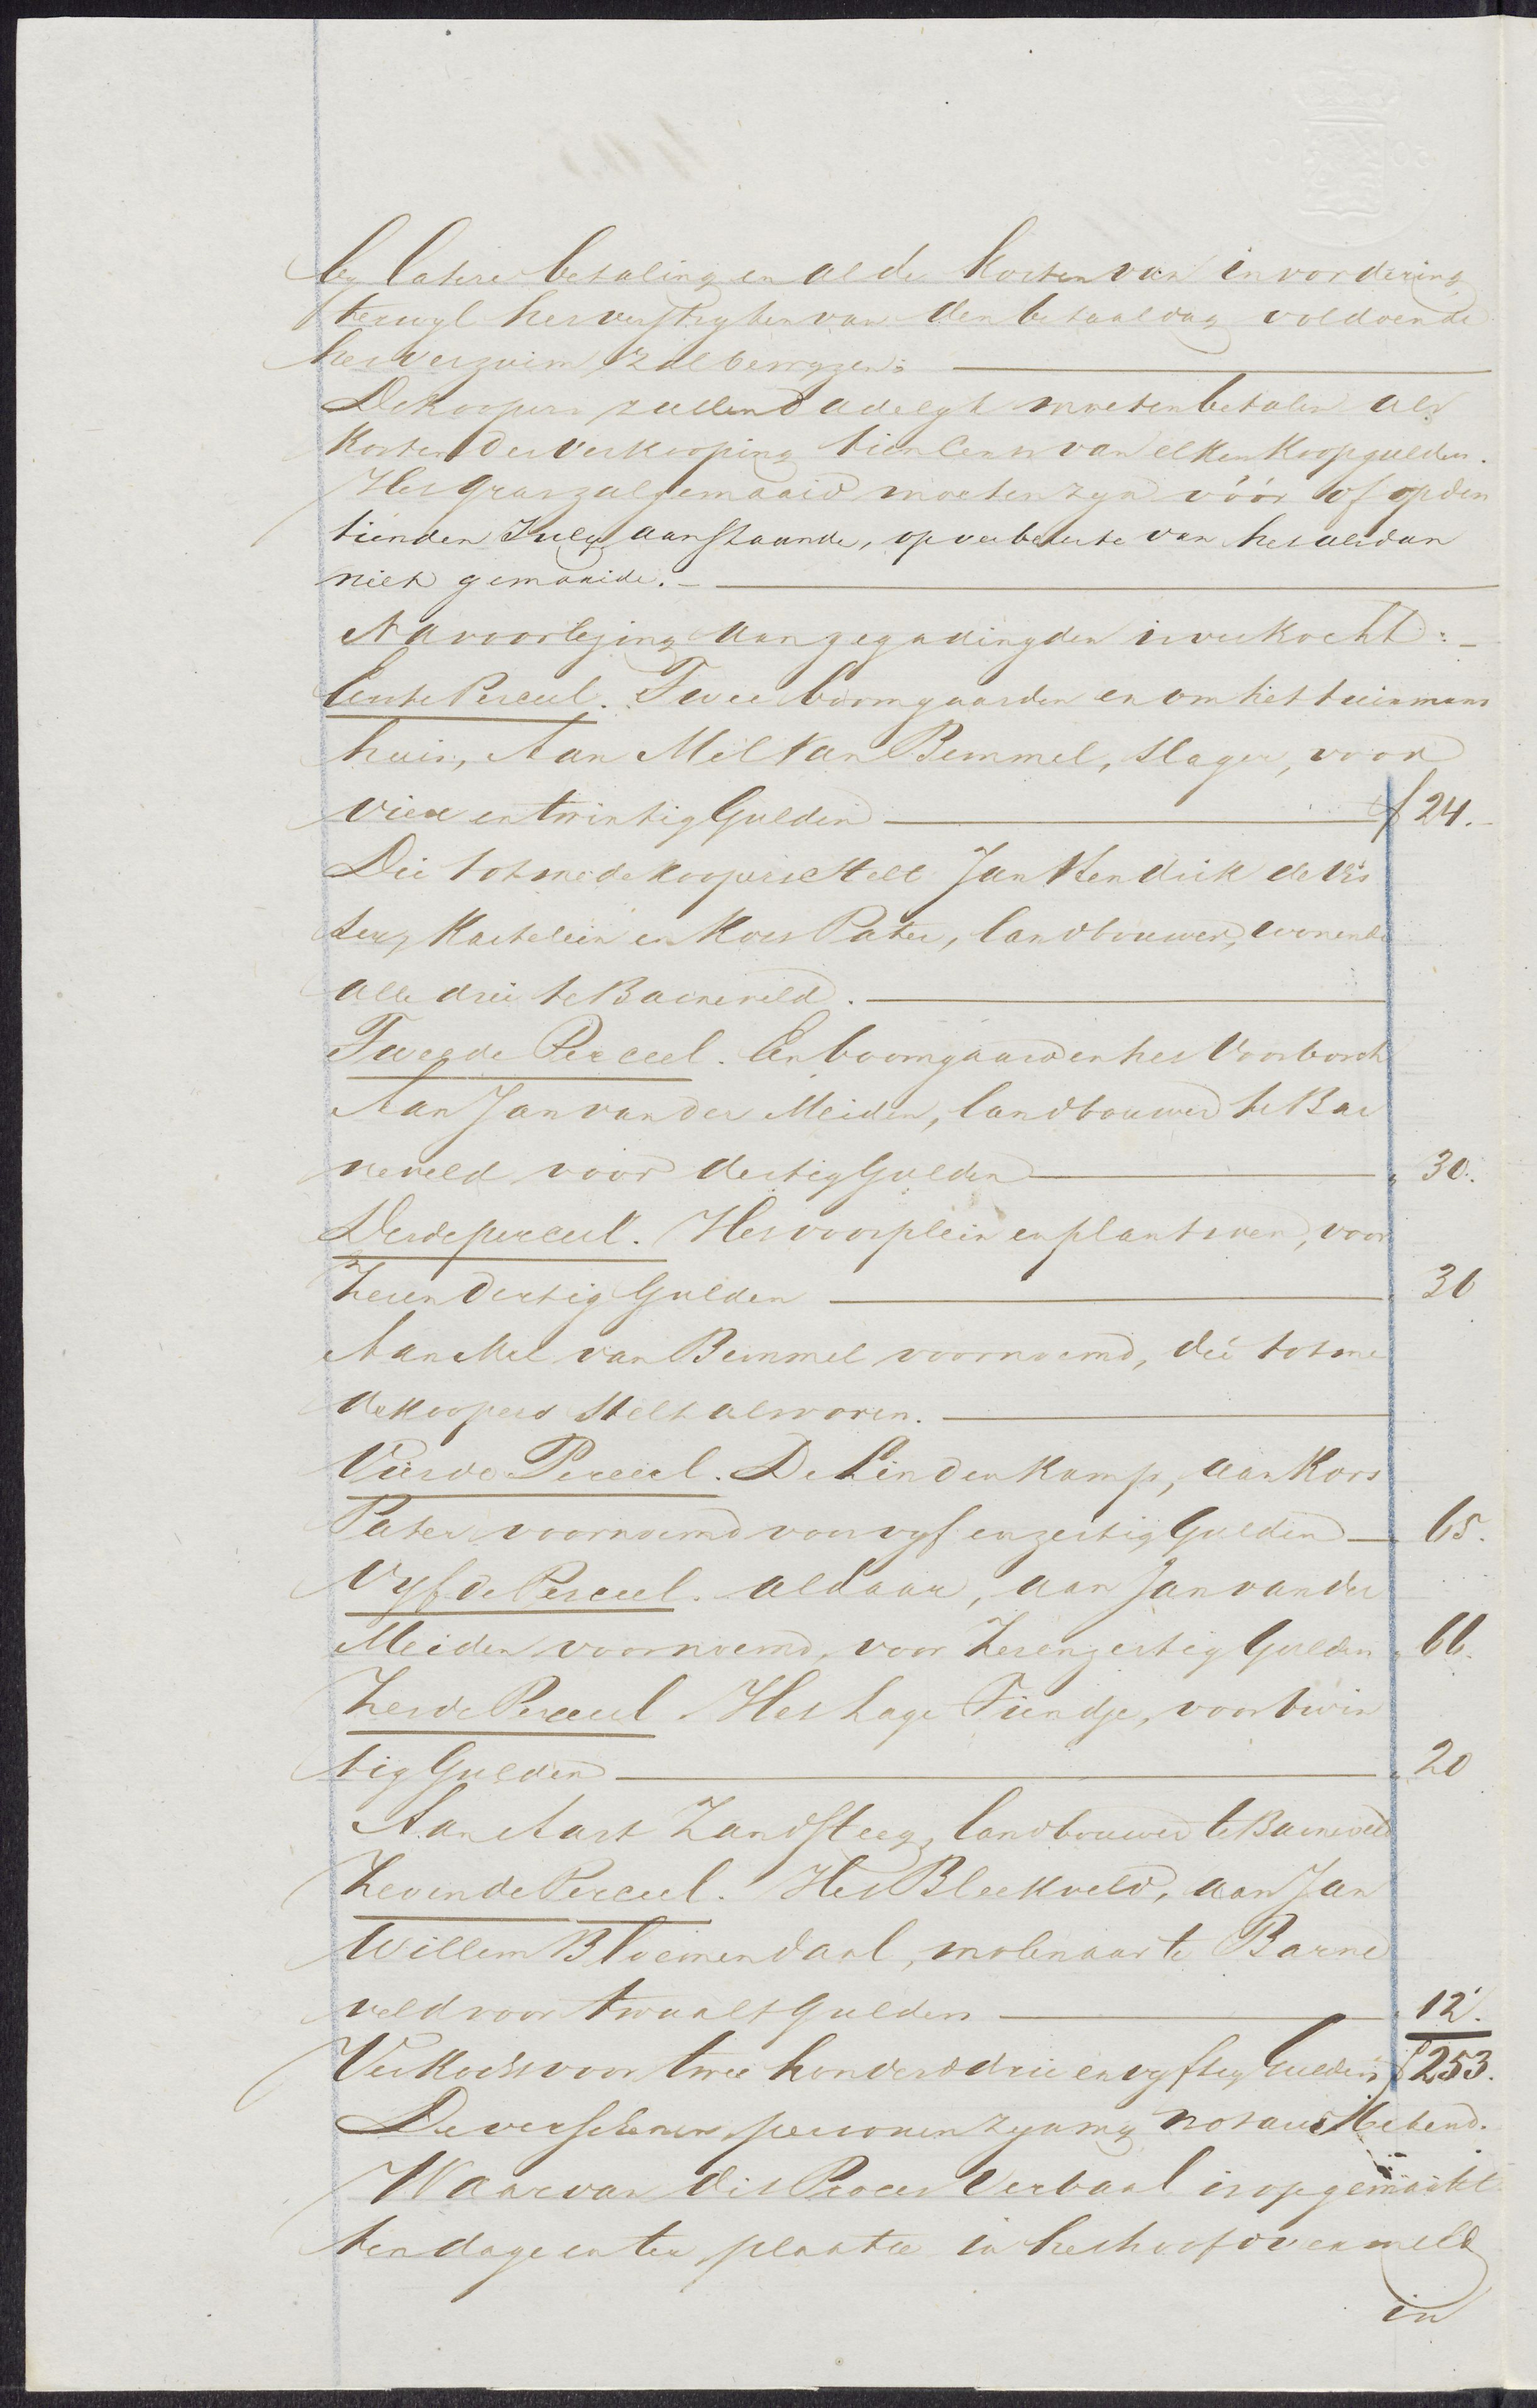 by latere betaling en al de kosten van invordering
terwyl het verstryken van den betaaldag voldoende
het verzuim zal bewyzen.
De koopers zullen dadelyk moeten betalen als
kosten der Verkooping tien Cents van elken Koopgulden.
Het gras zal gemaaid moeten zyn vóór of op den
tienden July aanstaande, op verbeurte van het alsdan
niet gemaaide.
Na voorlezing aan gegadingden is verkocht:
Eerste Perceel. Twee boomgaarden en om het tuinmans
huis, Aan Mel Van Bemmel, slager, voor
vier en twintig Gulden f 24.
Die tot mede koopers stelt Jan Hendrik de Vis
ser, Kastelein en Kors Pater, landbouwer, wonende
alle drie te Barneveld.
Tweede Perceel. Een boomgaard en het Voorbosch
Aan Jan van der Meiden, landbouwer te Bar
neveld voor dertig Gulden " 30.
Derde perceel. Het voorplein en plantsoen, voor
Zes en dertig Gulden " 36
Aan Mel van Bemmel voornoemd, die tot me
de koopers stelt als voren.
Vierde Perceel. De Lindenkamp, aan Kors
Pater voornoemd voor vyf en zestig Gulden " 65.
Vyfde Perceel. aldaar, aan Jan van der
Meiden voornoemd, voor Zes en zestig Gulden " 66.
Zesde Perceel. Het hage Tiendje, voor twin
tig Gulden " 20
Aan Aart Zandsteeg, landbouwer te Barneveld
Zevende Perceel. Het Bleekveld, aan Jan
Willem Bloemendaal, molenaar te Barne
veld voor twaalf Gulden " 12.
Verkocht voor twee honderd drie en vyftig Gulden f 253.
De verschenen personen zyn my notaris bekend.
Waarvan dit Proces Verbaal is opgemaakt
ten dage en ter plaatse in het hoofd vermeld
in